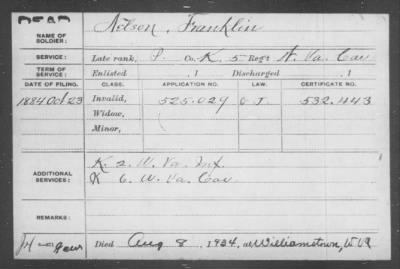 DEAD
NAME OF SOLDIER: Nelson, Franklin
SERVICE: Late rank, P. Co. K. 5 Reg't N. Va. Cav
TERM OF SERVICE: Enlisted , 1 Discharged , 1
DATE OF FILING. CLASS. APPLICATION NO. LAW. CERTIFICATE NO.
1884 Oct 23 Invalid, 525.029 532.443
Widow,
Minor,
ADDITIONAL SERVICES: K. 2. W. Va. Inf.
K 6. W. Va. Cav
Died Aug 8, 1934, at Williamstown, W Va